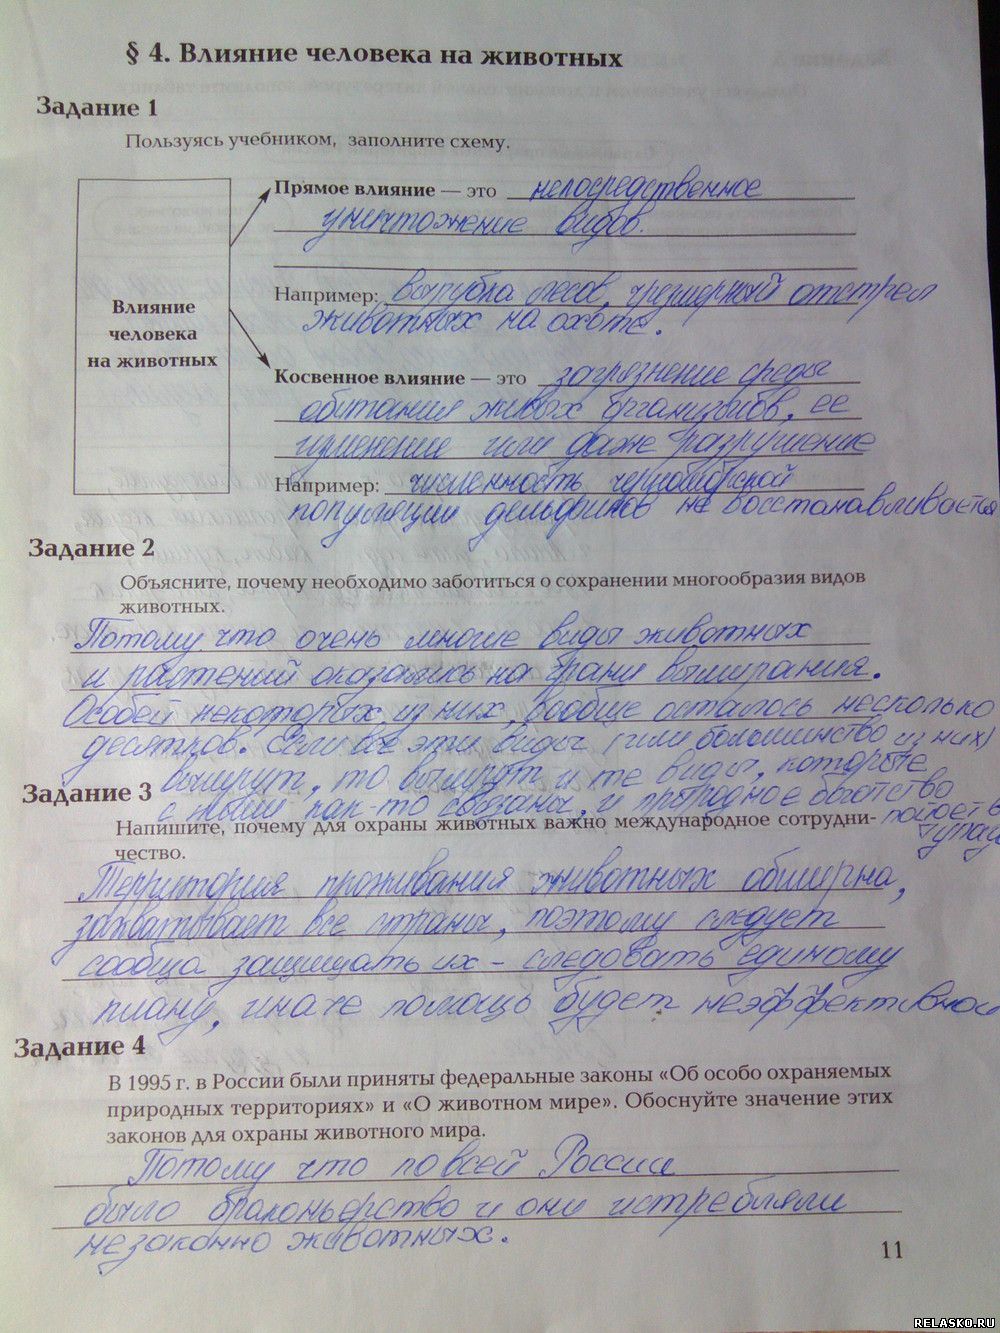 § 4. Влияние человека на животных
Задание 1
Пользуясь учебником, заполните схему.
Влияние
человека
на животных
Прямое влияние — это непосредственное
уничтожение видов.
Например: вырубка лесов, чрезмерный отстрел
животных на охоте.
Косвенное влияние — это загрязнение среды
обитания живых организмов, ее
изменение или даже разрушение
Например: численность черноморской
популяции дельфинов не восстанавливается
Задание 2
Объясните, почему необходимо заботиться о сохранении многообразия видов
животных.
Потому, что очень многие виды животных
и растений оказались на грани вымирания.
Особей некоторых из них вообще осталось несколько
десятков. Если все эти виды (или большинство из них)
вымрут, то вымрут и те виды, которые
с ними как-то связаны, и природное богатство
придет в
упадок
Задание 3
Напишите, почему для охраны животных важно международное сотрудни-
чество.
Территория проживания животных обширна,
захватывает все страны, поэтому следует
сообща защищать их - следовать единому
плану, иначе помощь будет неэффективной
Задание 4
В 1995 г. в России были приняты федеральные законы «Об особо охраняемых
природных территориях» и «О животном мире». Обоснуйте значение этих
законов для охраны животного мира.
Потому что по всей России
было браконьерство и они истребляли
незаконно животных.
11
RELASKO.RU